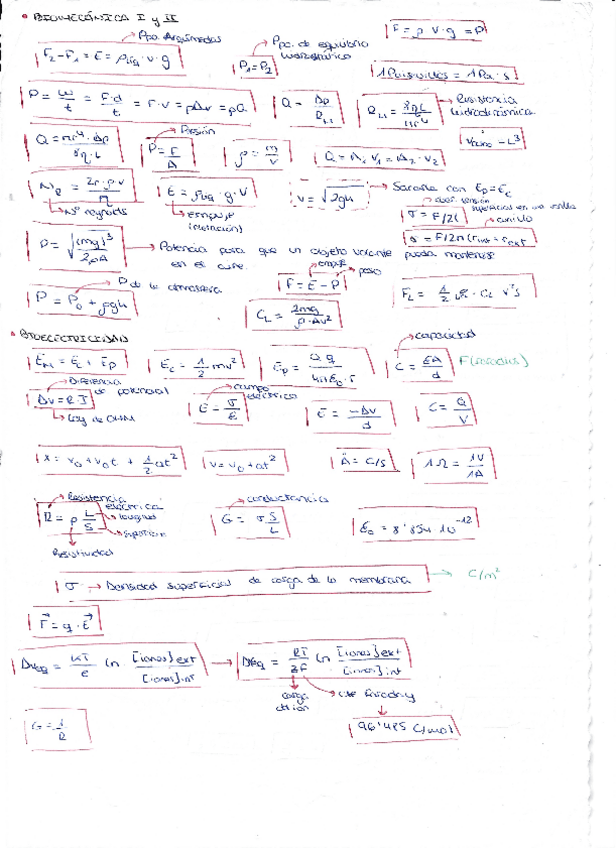 • BIOMECÁNICA I y II
Ppo. Arquímedes
F₂-F₁ = E = ρliq · v · g
Ppo. de equilibrio hidrostático
P₁ = P₂
F = ρ · V · g = P
1 Poiseuilles = 1 Pa · s
P = W/t = F·d/t = F·v = pΔv = pQ
Q = Δp/RH
RH = 8ηL/πr⁴ → Resistencia hidrodinámica
Q = πr⁴·Δp/8η·L
Presión
P = F/A
ρ = m/V
Q = A₁ v₁ = A₂ · v₂
NR = 2r·ρ·v/η
Nº reynolds
E = ρliq · g · V
empuje
(flotación)
v = √2gh → Sacarla con Ep = Ec
σ = F/2l
σ = F/2π(rint + rext
anillo
P = √(mg)³/2ρA → Potencia para que un objeto volante pueda mantenerse
en el aire.
P de la atmósfera
P = P₀ + ρgh
empuje
F = E - P
peso
CL = 2mg/ρ·Av²
• BIOELECTRICIDAD
EM = Ec + Ep
Ec = 1/2 mv²
Ep = Q q/4πE₀·r
capacidad
C = EA/d
F (faradios)
Diferencia de potencial
Δv = R·I
Ley de OHM
campo eléctrico
E = σ/ε
E = -Δv/d
C = Q/V
x = x₀ + v₀t + 1/2 at²
v = v₀ + at²
A = C/s
1 Ω = 1V/1A
Resistencia eléctrica
R = ρ L/S
longitud
superficie
Resistividad
conductancia
G = σ S/L
E₀ = 8'854·10⁻¹²
σ → Densidad superficial de carga de la membrana → C/m²
F = q · E
ΔVeq = kT/e ln [iones]ext/[iones]int → ΔVeq = RT/zF ln [iones]ext/[iones]int
carga del ion
cte Faraday
G = 1/R
96'485 C/mol